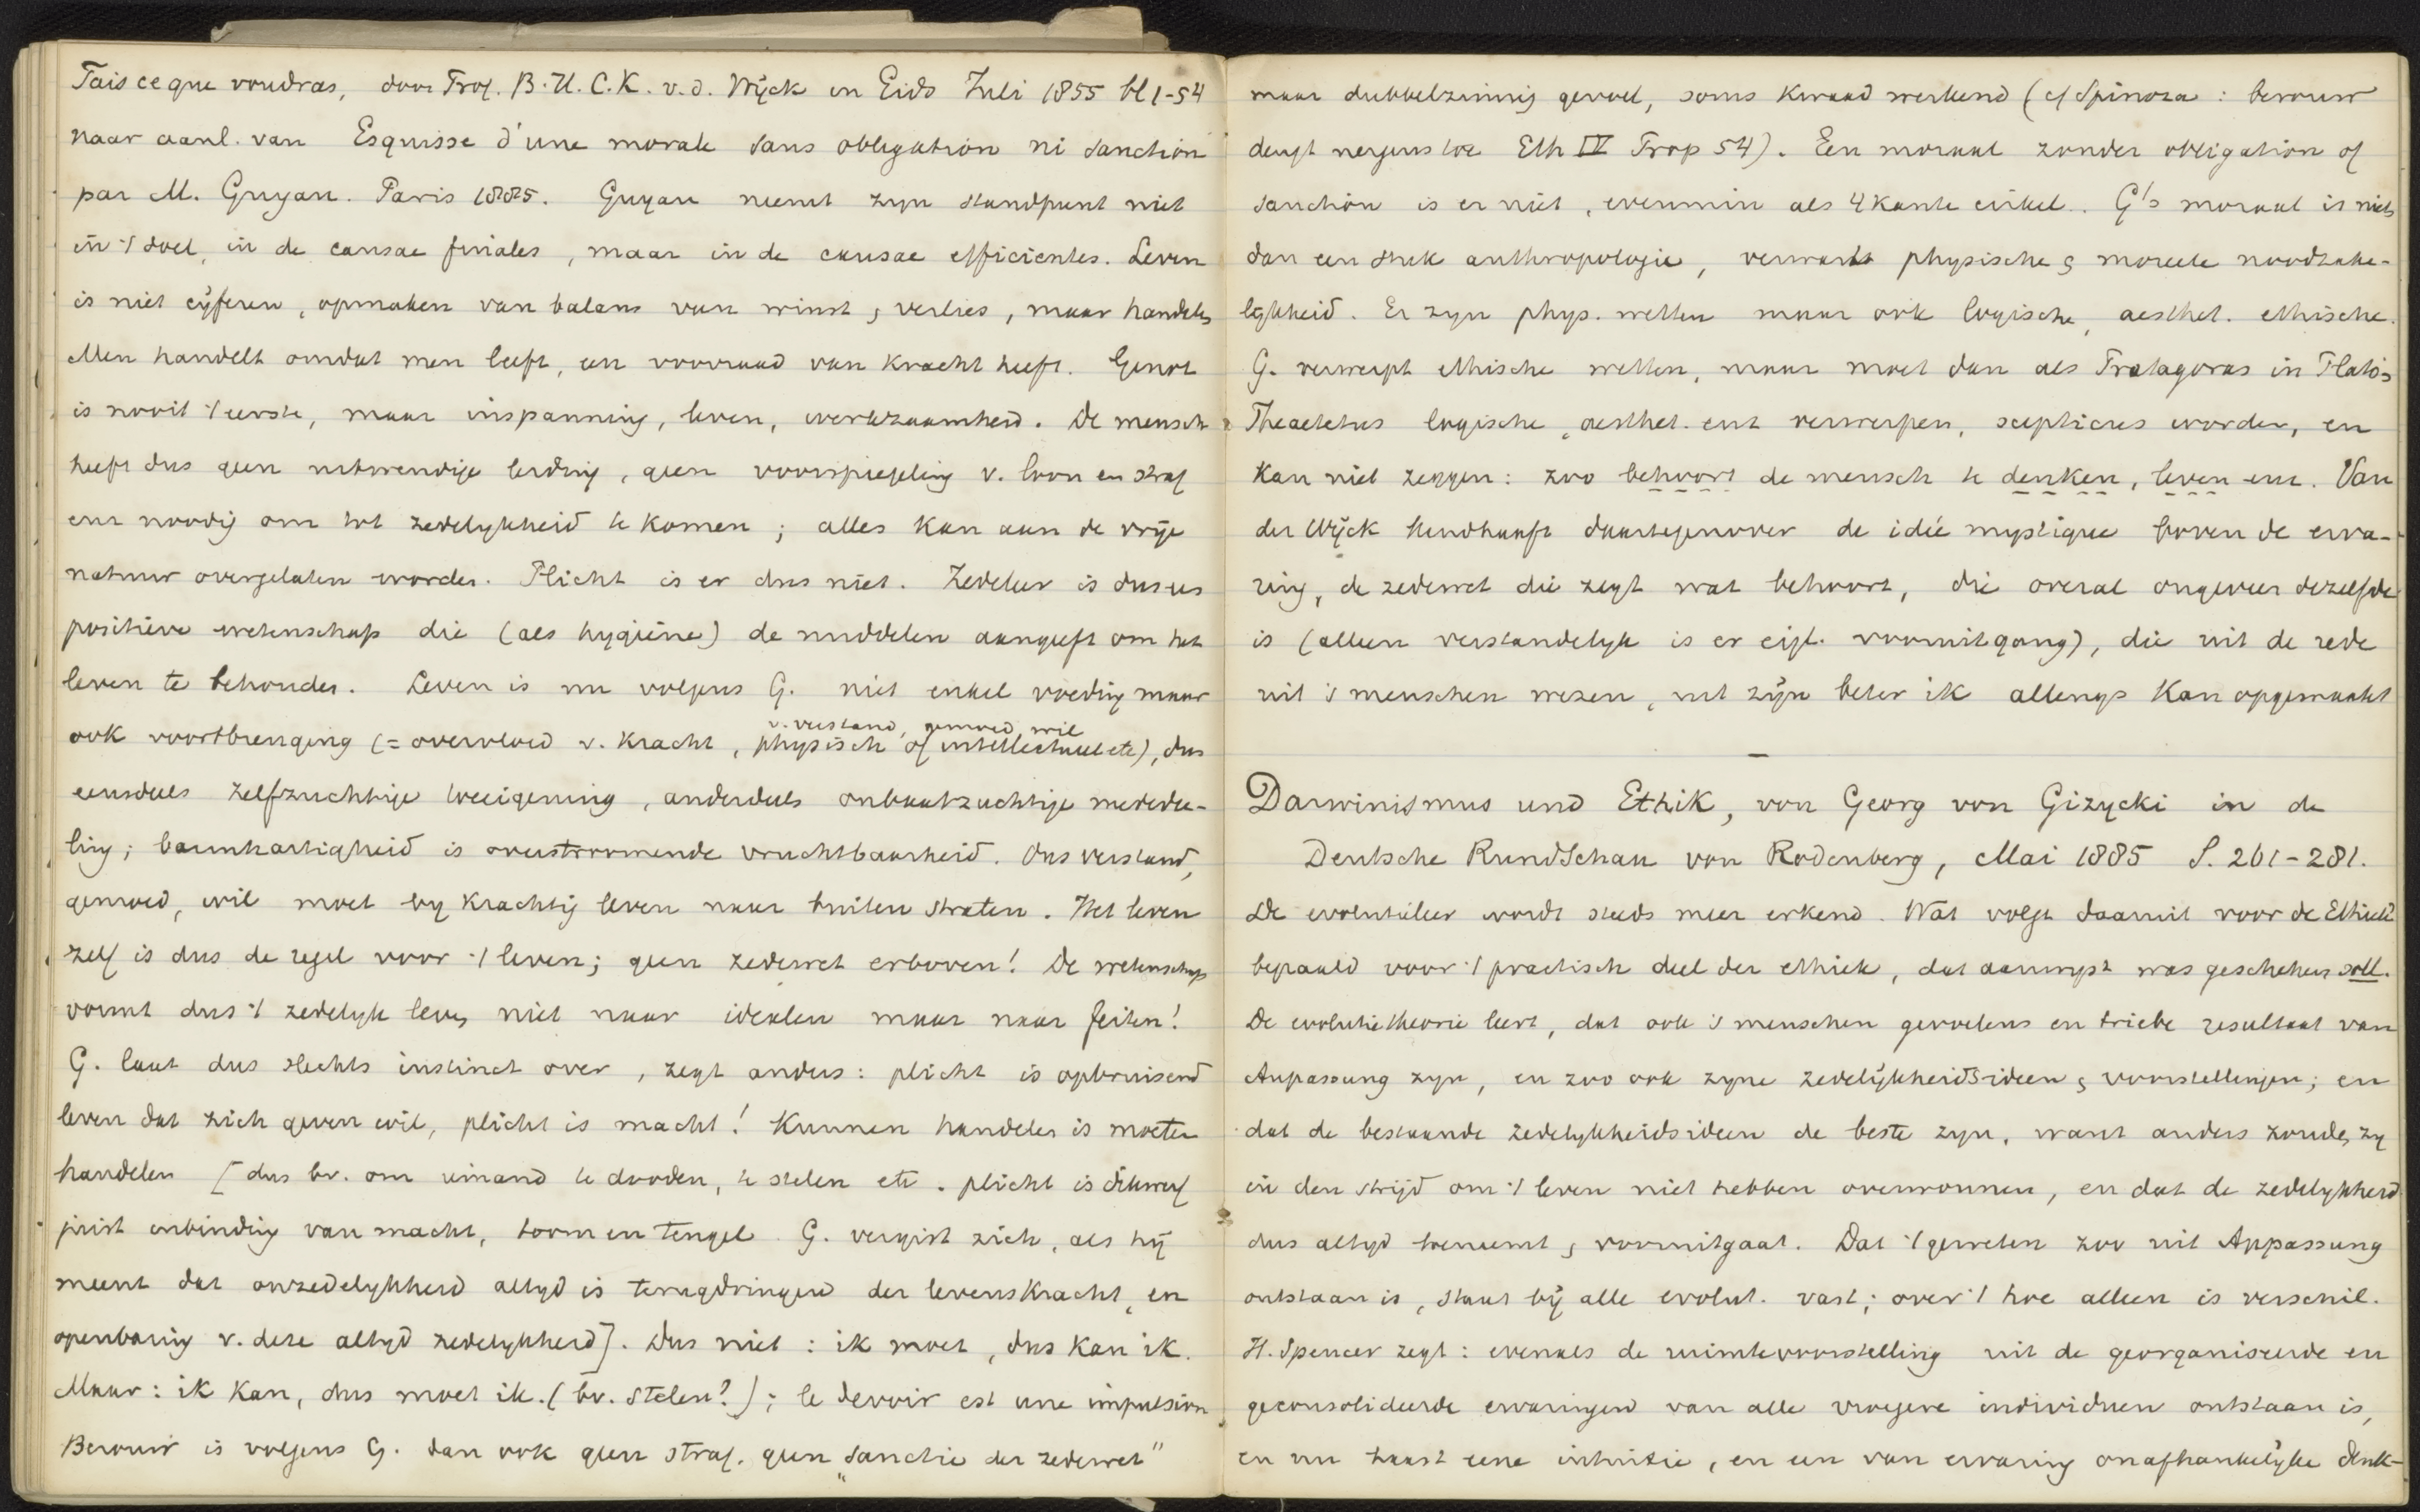 Fais ce que voudras, door Prof. B.H.C.K. v.d. Wijck in Gids Juli 1855 bl 1-54
naar aanl. van Esquisse d'une morale sans obligation ni sanction
par M. Guyau. Paris 1885. Guyau neemt zyn standpunt niet
in 't doel, in de causae finales, maar in de causae efficientes. Leven
is niet cijferen, opmaken van balans van winst & verlies, maar handelen
Men handelt omdat men leeft, een voorraad van kracht heeft. Genot
is nooit 't eerste, maar inspanning, leven, werkzaamheid. De mensch
heeft dus geen uitwendige leiding, geen voorspiegeling v. loon en straf
enz noodig om tot zedelykheid te komen; alles kan aan de vrije
natuur overgelaten worden. Plicht is er dus niet. Zedeleer is dus
positieve wetenschap die (als hygiëne) de middelen aangeeft om het
leven te behouden. Leven is nu volgens G. niet enkel voeding maar
v. verstand, gemoed, wil
ook voortbrenging (= overvloed v. kracht, physisch of intellectueel etc), dus
eensdeels zelfzuchtige toeeigening, anderdeels onbaatzuchtige mededee-
ling; barmhartigheid is overstroomende vruchtbaarheid. Ons verstand,
gemoed, wil moet by krachtig leven naar buiten stralen. Het leven
zelf is dus de regel voor 't leven; geen zedewet erboven! De wetenschap
vormt dus 't zedelyk leven niet naar idealen maar naar feiten!
G. laat dus slechts instinct over, zegt anders: plicht is opbruisend
leven dat zich geven wil, plicht is macht! Kunnen handelen is moeten
handelen [dus bv. om iemand te dooden, te stelen etc. plicht is dikwerf
juist inbinding van macht, toom en teugel. G. vergist zich, als hij
meent dat onzedelykheid altyd is terugdringen der levenskracht, en
openbaring v. deze altyd zedelykheid]. Dus niet: ik moet, dus kan ik.
Maar: ik kan, dus moet ik. (bv. stelen?); le devoir est une impulsion
Berouw is volgens G. dan ook geen straf, geen „sanctie der zedewet"
maar dubbelzinnig gevoel, soms kwaad werkend (cf Spinoza: berouw
deugt nergens toe Eth IV Prop 54). Een moraal zonder obligation of
sanction is er niet, evenmin als 4kante cirkel. G's moraal is niets
dan een stuk anthropologie, verwart physische & moreele noodzake-
lykheid. Er zyn phys. wetten maar ook logische, aesthet. ethische.
G. verwerpt ethische wetten, maar moet dan als Protagoras in Plato's
Theaetetus logische, aesthet. enz verwerpen, scepticus worden, en
kan niet zeggen: zoo behoort de mensch te denken, leven enz. Van
der Wijck handhaaft daartegenover de idée mystique boven de erva-
ring, de zedewet die zegt wat behoort, die overal ongeveer dezelfde
is (alleen verstandelyk is er eigl. vooruitgang), die uit de rede
uit 's menschen wezen, uit zijn beter ik allengs kan opgemaakt
—
Darwinismus und Ethik, von Georg von Gizycki in de
Deutsche Rundschau von Rodenberg, Mai 1885 S. 261-281.
De evolutieleer wordt steeds meer erkend. Wat volgt daaruit voor de Ethiek?
bepaald voor 't practisch deel der ethiek, dat aanwyst was geschehen soll.
De evolutietheorie leert, dat ook 's menschen gevoelens en triebe resultaat van
Anpassung zyn, en zoo ook zyne zedelijkheidsideen & voorstellingen; en
dat de bestaande zedelykheidsideen de beste zyn, want anders zouden zy
in den strijd om 't leven niet hebben overwonnen, en dat de zedelykheid
dus altyd toeneemt & vooruitgaat. Dat 't geweten zoo uit Anpassung
ontstaan is, staat bij alle evolut. vast; over 't hoe alleen is verschil.
H. Spencer zegt: evenals de ruimtevoorstelling uit de georganiseerde en
geconsolideerde ervaringen van alle vroegere individuen ontstaan is,
en nu haast eene intuitie, en een van ervaring onafhankelijke denk-